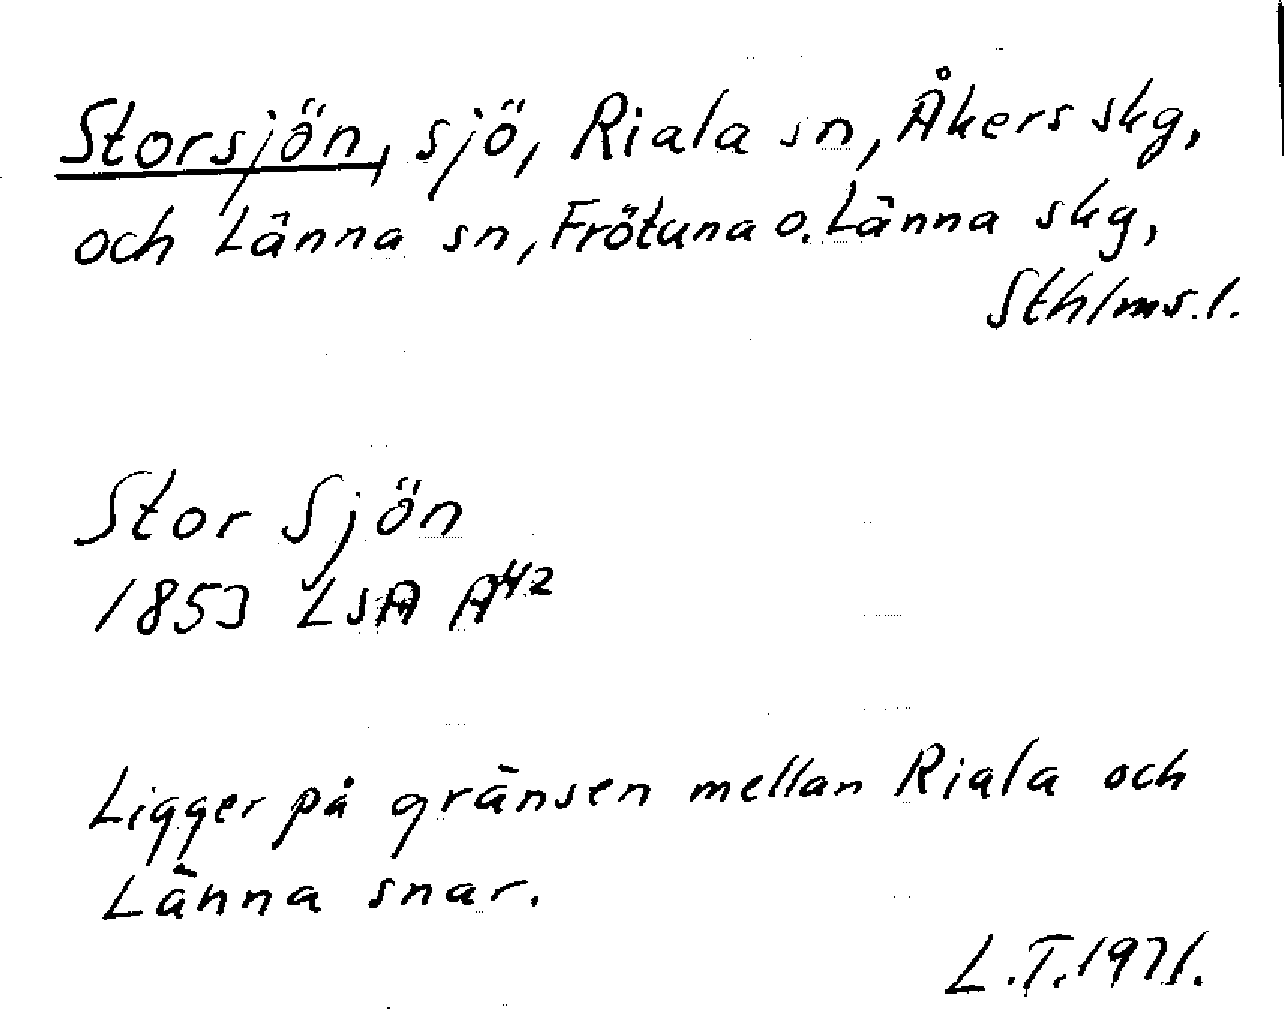 Storsjön, sjö, Riala sn, Åkers skg,
och Länna sn, Frötuna o. Länna skg,
Sthlms.l.
Stor Sjön
1853 LSA A42
Ligger på gränsen mellan Riala och
Länna snar.
L.T. 1971.